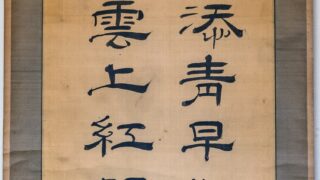 添青早
雲上紅